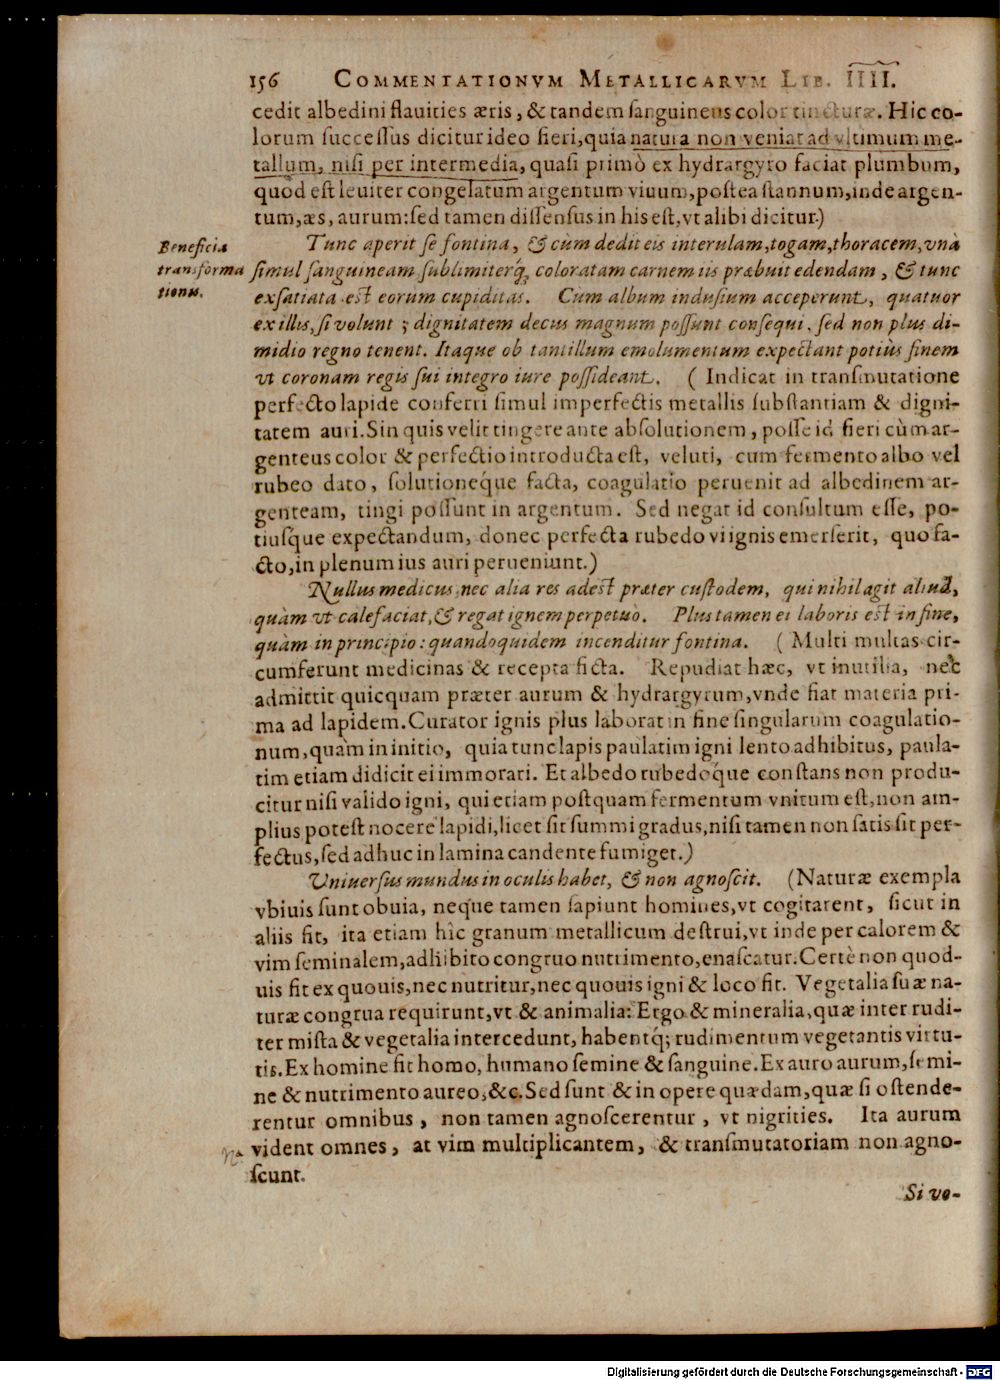 156 COMMENTATIONVM METALLICARVM LIB. IIII.
cedit albedini flauities æris, & tandem ſanguineus color tincturæ. Hic co-
lorum ſucceſſus dicitur ideo fieri, quia natura non veniat ad vltimum me-
tallum, niſi per intermedia, quaſi primò ex hydrargyro faciat plumbum,
quod eſt leuiter congelatum argentum viuum, poſtea ſtannum, inde argen-
tum, æs, aurum: ſed tamen diſſenſus in his eſt, vt alibi dicitur.)
Beneficia
transforma
tionis.
Tunc aperit ſe fontina, & cùm dedit eis interulam, togam, thoracem, vnà
ſimul ſanguineam ſublimiterq́; coloratam carnem iis præbuit edendam, & tunc
exſatiata eſt eorum cupiditas. Cum album induſium acceperunt, quatuor
ex illis, ſi volunt; dignitatem decus magnum poſſunt conſequi, ſed non plus di-
midio regno tenent. Itaque ob tantillum emolumentum expectant potiùs finem
vt coronam regis ſui integro iure poſſideant. (Indicat in tranſmutatione
perfecto lapide conferri ſimul imperfectis metallis ſubſtantiam & digni-
tatem auri. Sin quis velit tingere ante abſolutionem, poſſe id fieri cùm ar-
genteus color & perfectio introducta eſt, veluti, cum fermento albo vel
rubeo dato, ſolutioneque facta, coagulatio peruenit ad albedinem ar-
genteam, tingi poſſunt in argentum. Sed negat id conſultum eſſe, po-
tiuſque expectandum, donec perfecta rubedo vi ignis emerſerit, quo fa-
cto, in plenum ius auri perueniunt.)
Nullus medicus, nec alia res adeſt præter cuſtodem, qui nihil agit aliud,
quàm vt calefaciat, & regat ignem perpetuò. Plus tamen ei laboris eſt in fine,
quàm in principio: quandoquidem incenditur fontina. (Multi multas cir-
cumferunt medicinas & recepta ficta. Repudiat hæc, vt inutilia, nec
admittit quicquam præter aurum & hydrargyrum, vnde fiat materia pri-
ma ad lapidem. Curator ignis plus laborat in fine ſingularum coagulatio-
num, quàm in initio, quia tunc lapis paulatim igni lento adhibitus, paula-
tim etiam didicit ei immorari. Et albedo rubedoq́ue conſtans non produ-
citur niſi valido igni, qui etiam poſtquam fermentum vnitum eſt, non am-
plius poteſt nocere lapidi, licet ſit ſummi gradus, niſi tamen non ſatis ſit per-
fectus, ſed adhuc in lamina candente fumiget.)
Vniuerſus mundus in oculis habet, & non agnoſcit. (Naturæ exempla
vbiuis ſunt obuia, neque tamen ſapiunt homines, vt cogitarent, ſicut in
aliis fit, ita etiam hic granum metallicum deſtrui, vt inde per calorem &
vim ſeminalem, adhibito congruo nutrimento, enaſcatur. Certè non quod-
uis fit ex quouis, nec nutritur, nec quouis igni & loco fit. Vegetalia ſuæ na-
turæ congrua requirunt, vt & animalia: Ergo & mineralia, quæ inter rudi-
ter miſta & vegetalia intercedunt, habentq́; rudimentum vegetantis virtu-
tis. Ex homine fit homo, humano ſemine & ſanguine. Ex auro aurum, ſemi-
ne & nutrimento aureo, &c. Sed ſunt & in opere quædam, quæ ſi oſtende-
rentur omnibus, non tamen agnoſcerentur, vt nigrities. Ita aurum
vident omnes, at vim multiplicantem, & tranſmutatoriam non agno-
ſcunt.
Si ve-
Digitalisierung gefördert durch die Deutsche Forschungsgemeinschaft - DFG